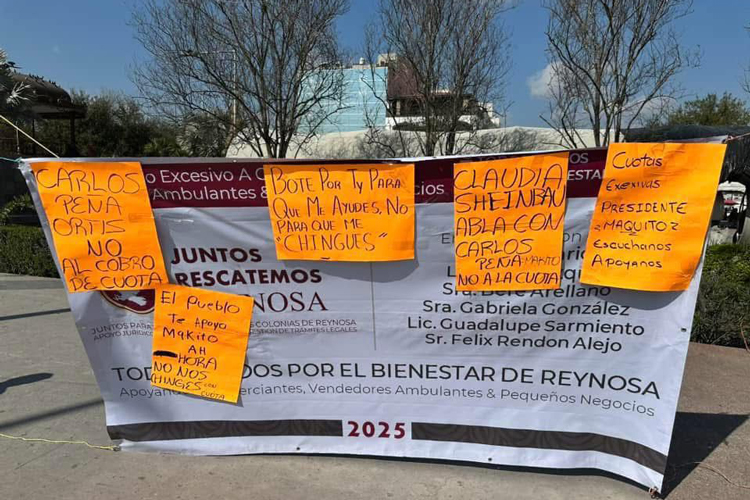 CARLOS
PEÑA
ORTIS
NO
AL COBRO
DE CUOTA
BOTE POR TY PARA
QUE ME AYUDES, NO
PARA QUE ME
"CHINGUES"
CLAUDIA
SHEINBAU
ABLA CON
CARLOS
PEÑA MAKITO
NO A LA CUOTA
CUOTAS
EXESIVAS
PRESIDENTE
"MAQUITO"
Escuchanos
Apoyanos
El Pueblo
Te Apoyo
Makito
AH
HORA
NO NOS
CHINGES con
CUOTA
o Excesivo A
Ambulantes &
egocios
ESTAR
JUNTOS
RESCATEMOS
NOSA
JUNTOS PARA
COLONIAS DE REYNOSA
APOYO JURIDICO
ESTION DE TRÁMITES LEGALES
Arellano
Sra. Gabriela González
Lic. Guadalupe Sarmiento
Sr. Felix Rendon Alejo
TOD DOS POR EL BIENESTAR DE REYNOSA
Apoyan erciantes, Vendedores Ambulantes & Pequeños Negocios
2025